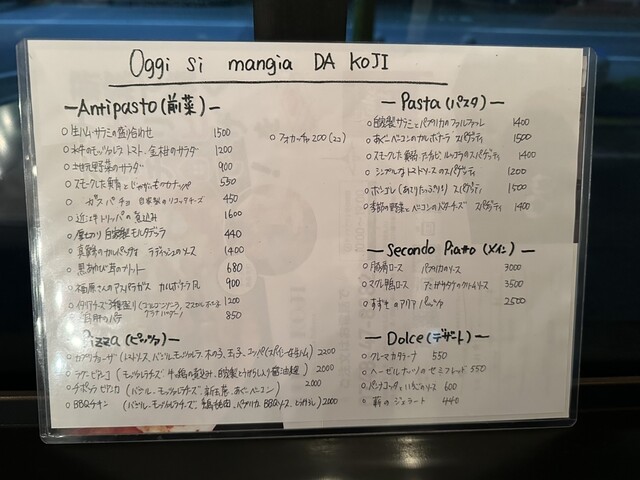 Oggi si mangia DA KOJI
—Antipasto(前菜)—
○生ハム・サラミの盛り合わせ 1500
○水牛のモッツァレラ トマト、金柑のサラダ 1200
○土地元野菜のサラダ 900
○スモークした真鯖とじゃがいものカナッペ 550
○ガスパチョ 自家製のリコッタチーズ 450
○近江牛トリッパの煮込み 1600
○厚切り自家製モルタデッラ 440
○真鯛のカルパッチョ ラディッシュのソース 1400
○黒あわび茸のソテー 680
○アスパラガス カルボナーラ風 900
○イタリアチーズ3種盛り(ゴルゴンゾーラ、マスカルポーネ 1200
850
○フォカッチャ 200(2コ)
Pizza(ピッツァ)
○カプリチョーザ(トマトソース、バジル、モッツァレラ、木の子、玉子、コッパ(スパイシーな生ハム) 2200
○ラグービアンコ(モッツァレラチーズ、牛と鶏の煮込み、自家製とうがらし醤油麹) 2000
○チポッラビアンカ(バジル、モッツァレラチーズ、新玉葱、あぐーベーコン) 2000
○BBQチキン(バジル、モッツァレラチーズ、鶏もも肉、パプリカ、BBQソース、とうがらし) 2000
—Pasta(パスタ)—
○自家製サラミとパプリカのファルファッレ 1400
○あぐーベーコンのカルボナーラ スパゲッティ 1500
○スモークした真鯖、ケッパー、ルッコラのスパゲッティ 1400
○シンプルなトマトソースのスパゲッティ 1200
○ボンゴレ(あさりたっぷり!) スパゲッティ 1500
○季節の野菜とベーコンのペペチーズ スパゲッティ 1400
—Secondo Piatto(メイン)—
○豚肩ロース パプリカのソース 3000
○マグレ鴨ロース アニスがサラダのクリームソース 3500
○すずきのアクアパッツァ 2500
—Dolce(デザート)—
○クレマカタラーナ 550
○ヘーゼルナッツのセミフレッド 550
○パンナコッタ いちごのソース 600
○苺のジェラート 440